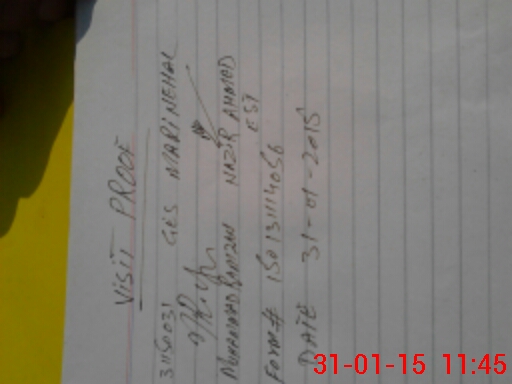 VISIT PROOF
31150031 GES MARI NEHAL
MUHAMMAD RAMZAN NAZIR AHMED
EST
FORM# 150131114056
DATE 31-01-2015
31-01-15 11:45